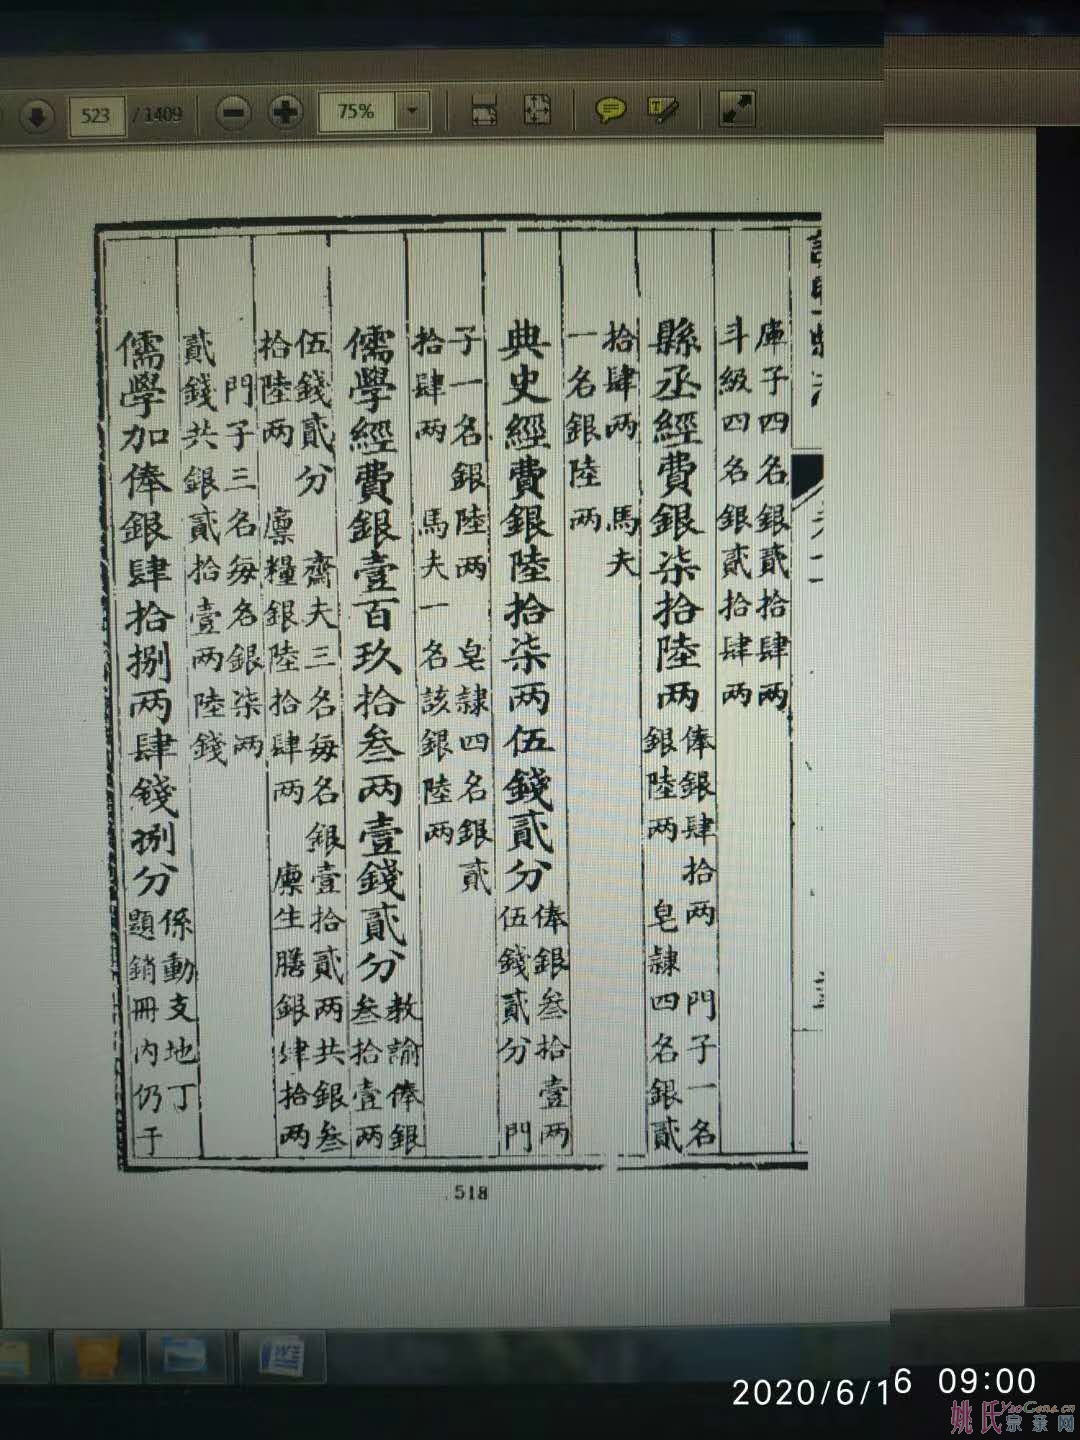 523 / 1409 75%
庫子四名銀貳拾肆两
斗級四名銀貳拾肆两
縣丞經費銀柒拾陸两
俸銀肆拾两 門子一名
銀陸两 皂隸四名銀貳
拾肆两 馬夫
一名銀陸两
典史經費銀陸拾柒两伍錢貳分
俸銀叁拾壹两
伍錢貳分 門
子一名銀陸两 皂隸四名銀貳
拾肆两 馬夫一名該銀陸两
儒學經費銀壹百玖拾叁两壹錢貳分
教諭俸銀
叁拾壹两
伍錢貳分 齋夫三名每名銀壹拾貳两共銀叁
拾陸两 廪糧銀陸拾肆两 廪生膳銀肆拾两
門子三名每名銀柒两
貳錢共銀貳拾壹两陸錢
儒學加俸銀肆拾捌两肆錢捌分
係動支地丁
題銷冊内仍于
518
2020/6/16 09:00
姚氏宗亲网
YaoGens.cn